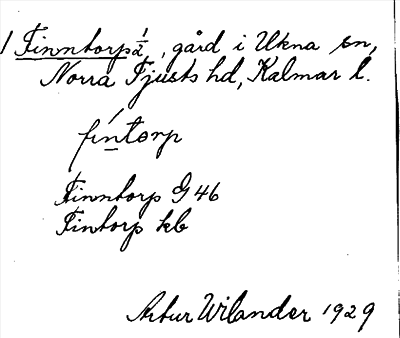 1 Finntorp ½, gård i Ukna sn,
Norra Tjusts hd, Kalmar l.
fíntorp
Finntorp G 46
Fintorp kb
Artur Wilander 1929